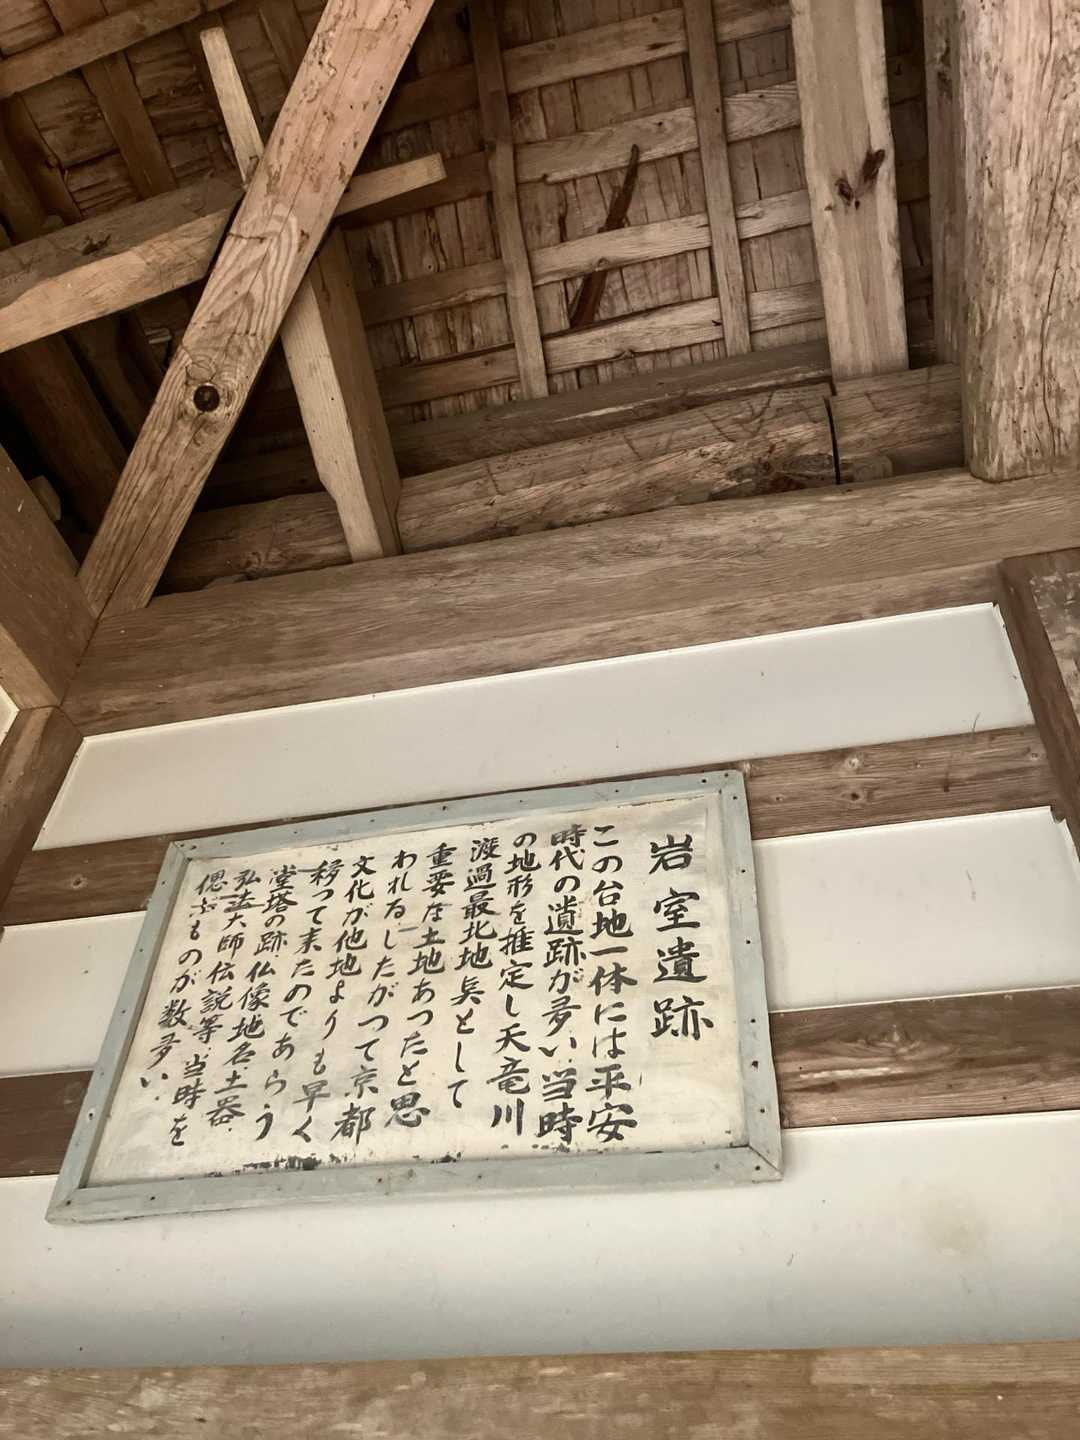 岩室遺跡
この台地一体には平安
時代の遺跡が多い.当時
の地形を推定し天竜川
渡過最北地点として
重要な土地あったと思
われる_したがって京都
文化が他地よりも早く
移って来たのであらう
堂塔の跡.仏像地名.土器.
弘法大師伝説等.当時を
偲ぶものが数多い.